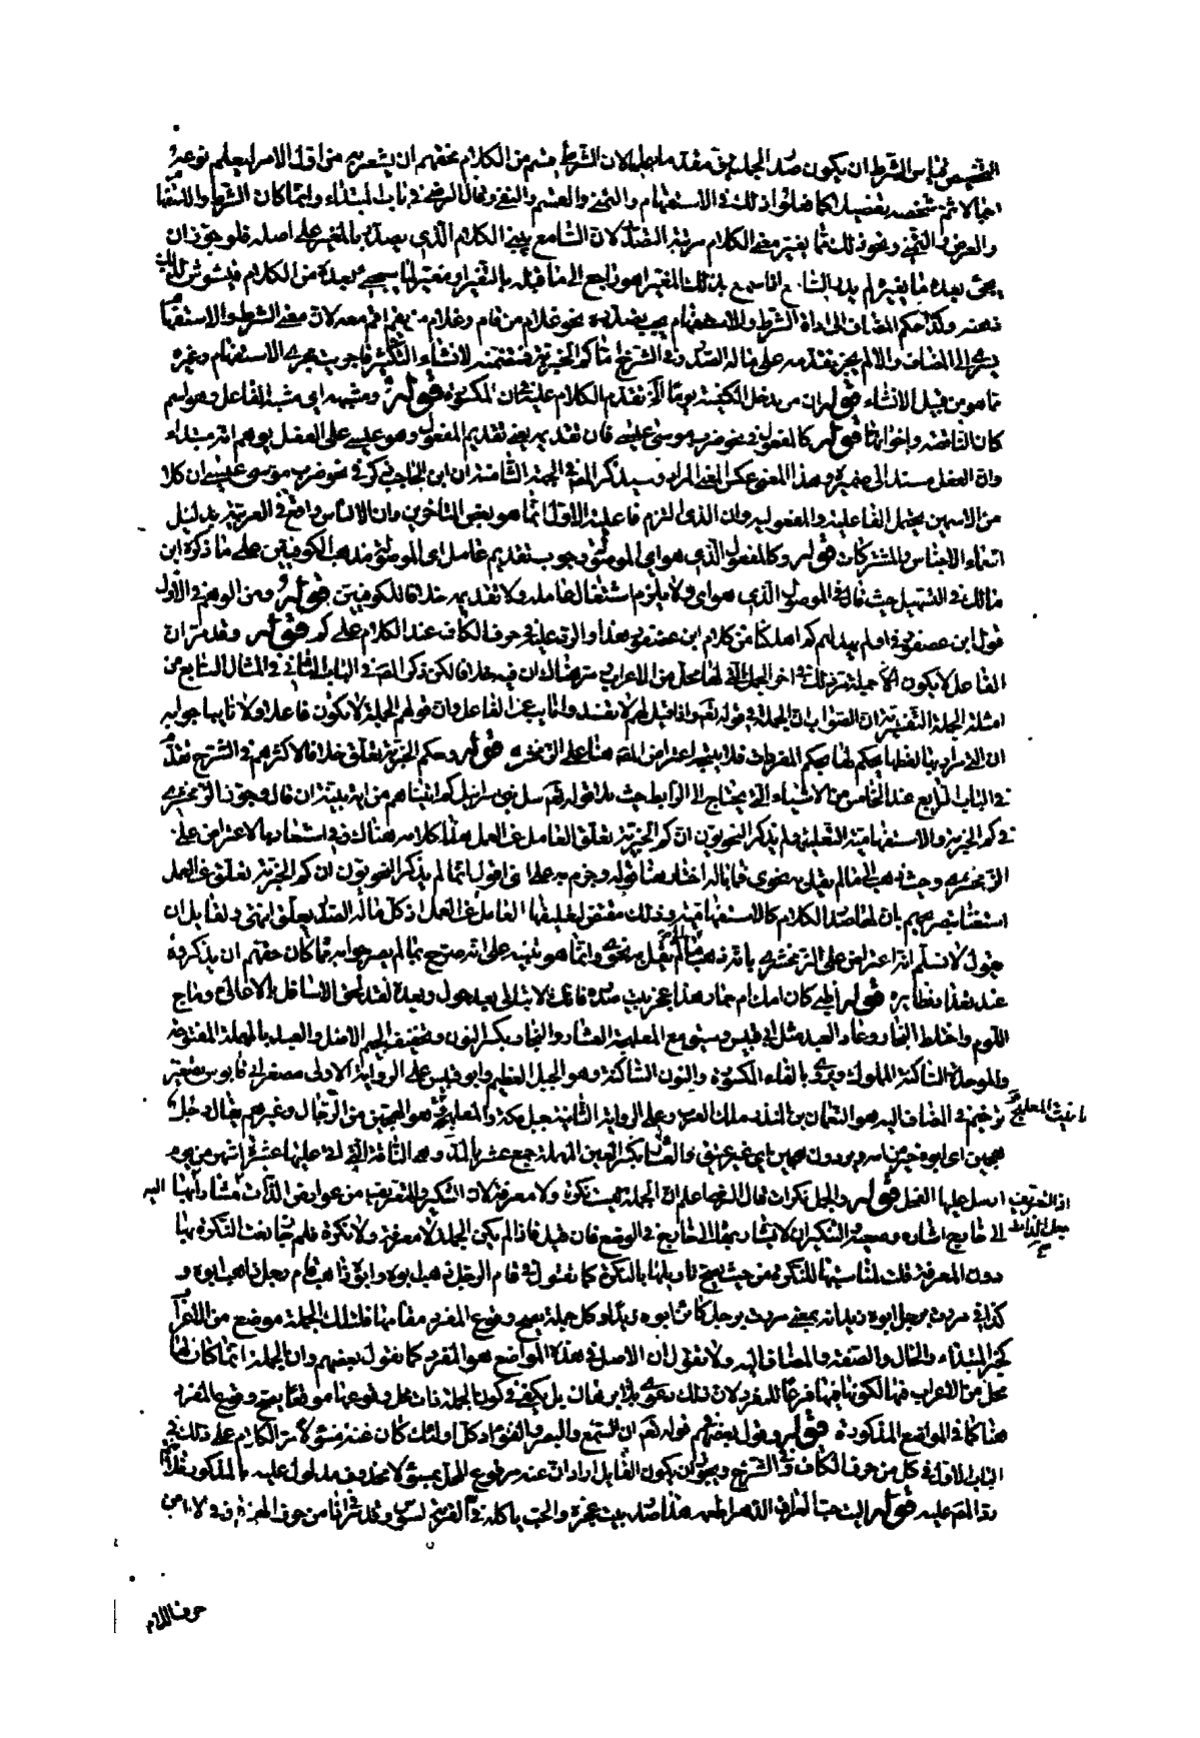 التخصيص قياس الشرط ان يكون صدر الجملة لان الشرط قسم من الكلام فحقهم ان يشعر به من اول الامر ليعلم نوعه
اجمالا ثم تفصيلا كما فعلوا ذلك في الاستفهام والتمني والقسم والنفي وقال الرضي في باب المبتداء وانما كان الشرط والاستفها
والعرض والتمني ونحو ذلك مما يغير معنى الكلام مرتبة الصدر لان السامع يبني الكلام الذي يصدر بالمغير على اصله فلو جوز ان
يجئ بعده ما يغيره لم يدر السامع اذا سمع بذلك المغير اهو راجع الى ما قبله بالتغيير او مغير لما سيجئ بعده من الكلام فيتشوش لذلك
ذهنه وكذا حكم المضاف الى اداة الشرط والاستفهام يجب تصديره نحو غلام من قام وغلام من يقم اقم معه لان معنى الشرط والاستفها
يسري الى المضاف والا لم يجز تقدمه على ما له الصدر وفي الشرح اما كم الخبرية فتضمنه لانشاء التكثير فاجريت مجرى الاستفهام وغيره
مما هو من قبيل الانشاء قوله ان من يدخل الكنيسة يوما الخ تقدم الكلام عليه في ان المكسورة قوله ومشبهه اي مشبه الفاعل وهو اسم
كان الناقصة واخواتها قوله كالمفعول في نحو ضرب موسى عيسى فان تقديمه يعني تقديم المفعول وهو عيسى على الفعل يوهم انه مبتداء
وان الفعل مسند الى ضميره وهذا المعنى عكس المعنى المراد وسيذكر المص في الجهة الثامنة ان ابن الحاج ذكر في نحو ضرب موسى عيسى ان كلا
من الاسمين يحتمل الفاعلية والمفعولية وان الذي التزم فاعلية الاول انما هو بعض المتأخرين وان الالباس واقع في العربية بدليل
اسماء الاجناس والمشتركات قوله وكالمفعول الذي هو اي الموصولة وجوب تقديم عامل اي الموصولة مذهب الكوفيين على ما ذكره ابن
مالك في التسهيل حيث قال في الموصول الذي هو اي ولا يلزم استقبال عامله ولا تقديمه خلافا للكوفيين قوله ومن الوهم في الاول
قول ابن عصفور في اولم يهد لهم كم اهلكنا من كلام ابن عصفور هذا والرد عليه في حرف الكاف عند الكلام على كم قوله وقد مر ان
الفاعل لا يكون الا جملة مر ذلك في اخر الجمل التي لها محل من الاعراب مر هناك ان فيه خلافا لكن ذكر المص في الباب الثاني في المثال السابع من
امثلة الجملة التفسيرية ان الصواب ان الجملة في قوله تع واذا قيل لهم لا تفسدوا نائب عن الفاعل وان قولهم الجملة لا تكون فاعلا ولا نائبا جوابه
ان التي يراد بها لفظها يحكم لها بحكم المفردات فلا يتجه اعتراض المص هنا على الزمخشري قوله وحكم الخبرية تعلق خلافا لاكثرهم في الشرح تقدم
في الباب الرابع عند الخامس من الاشياء التي يحتاج الى الرابط حيث تلا قوله تع سل بني اسرائيل كم اتيناهم من اية بينة ان قال وجوز الزمخشري
في كم الخبرية والاستفهامية التعليق ولم يذكر النحويون ان كم الخبرية تعلق العامل عن العمل هذا كلامه هناك في استشهادها لاعتراض على
الزمخشري وحيث ذهب الى ما لم يقل به نحوي فما باله اختار هنا قوله وجزم به على اني اقول انما لم يذكر النحويون ان كم الخبرية تعلق عن العمل
استغناء بتصريحهم بان لها صدر الكلام كالاستفهامية وذلك مقتض لتعليقها العامل عن العمل اذ كل ما له الصدر يعلق انتهى ولقايل ان
يقول لا نسلم انه اعتراض على الزمخشري بانه ذهب الى ما لم يقل به نحوي وانما هو تنبيه على انه صرح بما لم يصرحوا به مما كان حقهم ان يذكروه
عند نظايره قوله اظبي كان امك ام حمار هذا عجز بيت صدره فانك لا تبالي بعد حول وبعده لقد لحق الاسافل بالاعالى وماج
اللوم واختلط النجار وعاد العبد مثل ابي قبيس وسيق مع المعلهجة العشار والنجار بكسر النون وتخفيف الجيم الاصل والعبد بالمهملة المفتوحة
والموحدة الساكنة المملوك ويروى بالفاء المكسورة والنون الساكنة وهو الجبل العظيم وابو قبيس على الرواية الاولى مصغر ابي قابوس تصغير
ترخيم في المضاف اليه هو النعمان بن المنذر ملك العرب وعلى الرواية الثانية جبل مكة والمعلهجة تانيث المعلهج وهو الهجين من الرجال وغيرهم يقال رجل
هجين اي ابوه خير من امه وبرذون هجين اي غير عتيق والعشار بكسر العين المهملة جمع عشراء بالمد وهي الناقة التي اتى عليها عشرة اشهر من يوم
ارسل عليها الفحل قوله والجمل نكرات قال الرضي اعلم ان الجملة ليست نكرة ولا معرفة لان التنكير والتعريف من عوارض الذات اذ التعريف جعل الذات مشارا بها اليه
الى خارج اشارة وضعية والتنكير ان لا يشار بها الى خارج في الوضع فان قيل فاذا لم تكن الجملة لا معرفة ولا نكرة فلم جاز نعت النكرة بها
دون المعرفة قلت لمناسبتها للنكرة من حيث يصح تاويلها بالنكرة كما تقول في قام الرجل ذهب ابوه وابوه ذاهب قام رجل ذاهب ابوه و
كذا في مررت برجل ابوه زيد انه بمعنى مررت برجل كائن ابوه زيدا وكل جملة يصح وقوع المفرد مقامها فلتلك الجملة موضع من الاعرا
كخبر المبتداء والحال والصفة والمضاف اليه ولا نقول ان الاصل في هذه المواضع هو المفرد كما يقول بعضهم وان الجملة انما كان لها
محل من الاعراب فيها لكونها فيها فرعا للمفرد لان ذلك دعوى بلا برهان بل يكفي في كون الجملة ذات محل وقوعها موقعا يصح وقوع المفرد
هناك كما في المواقع المذكورة قوله وقول بعضهم قوله تع ان السمع والبصر والفؤاد كل اولئك كان عنه مسئولا مر الكلام على ذلك في
الباب الاول في كل من حرف الكاف وفي الشرح ويجوز ان يكون القايل اراد ان عنه مرفوع المحل بمسئولا محذوف مدلول عليه بالمذكور
رد المص عليه قوله اليت حب العراق الدهر اطعمه هذا صدر بيت عجزه والحب ياكله في القرية السوس وقد مر انا من حرف الهمزة وفي لا من
حرف اللام